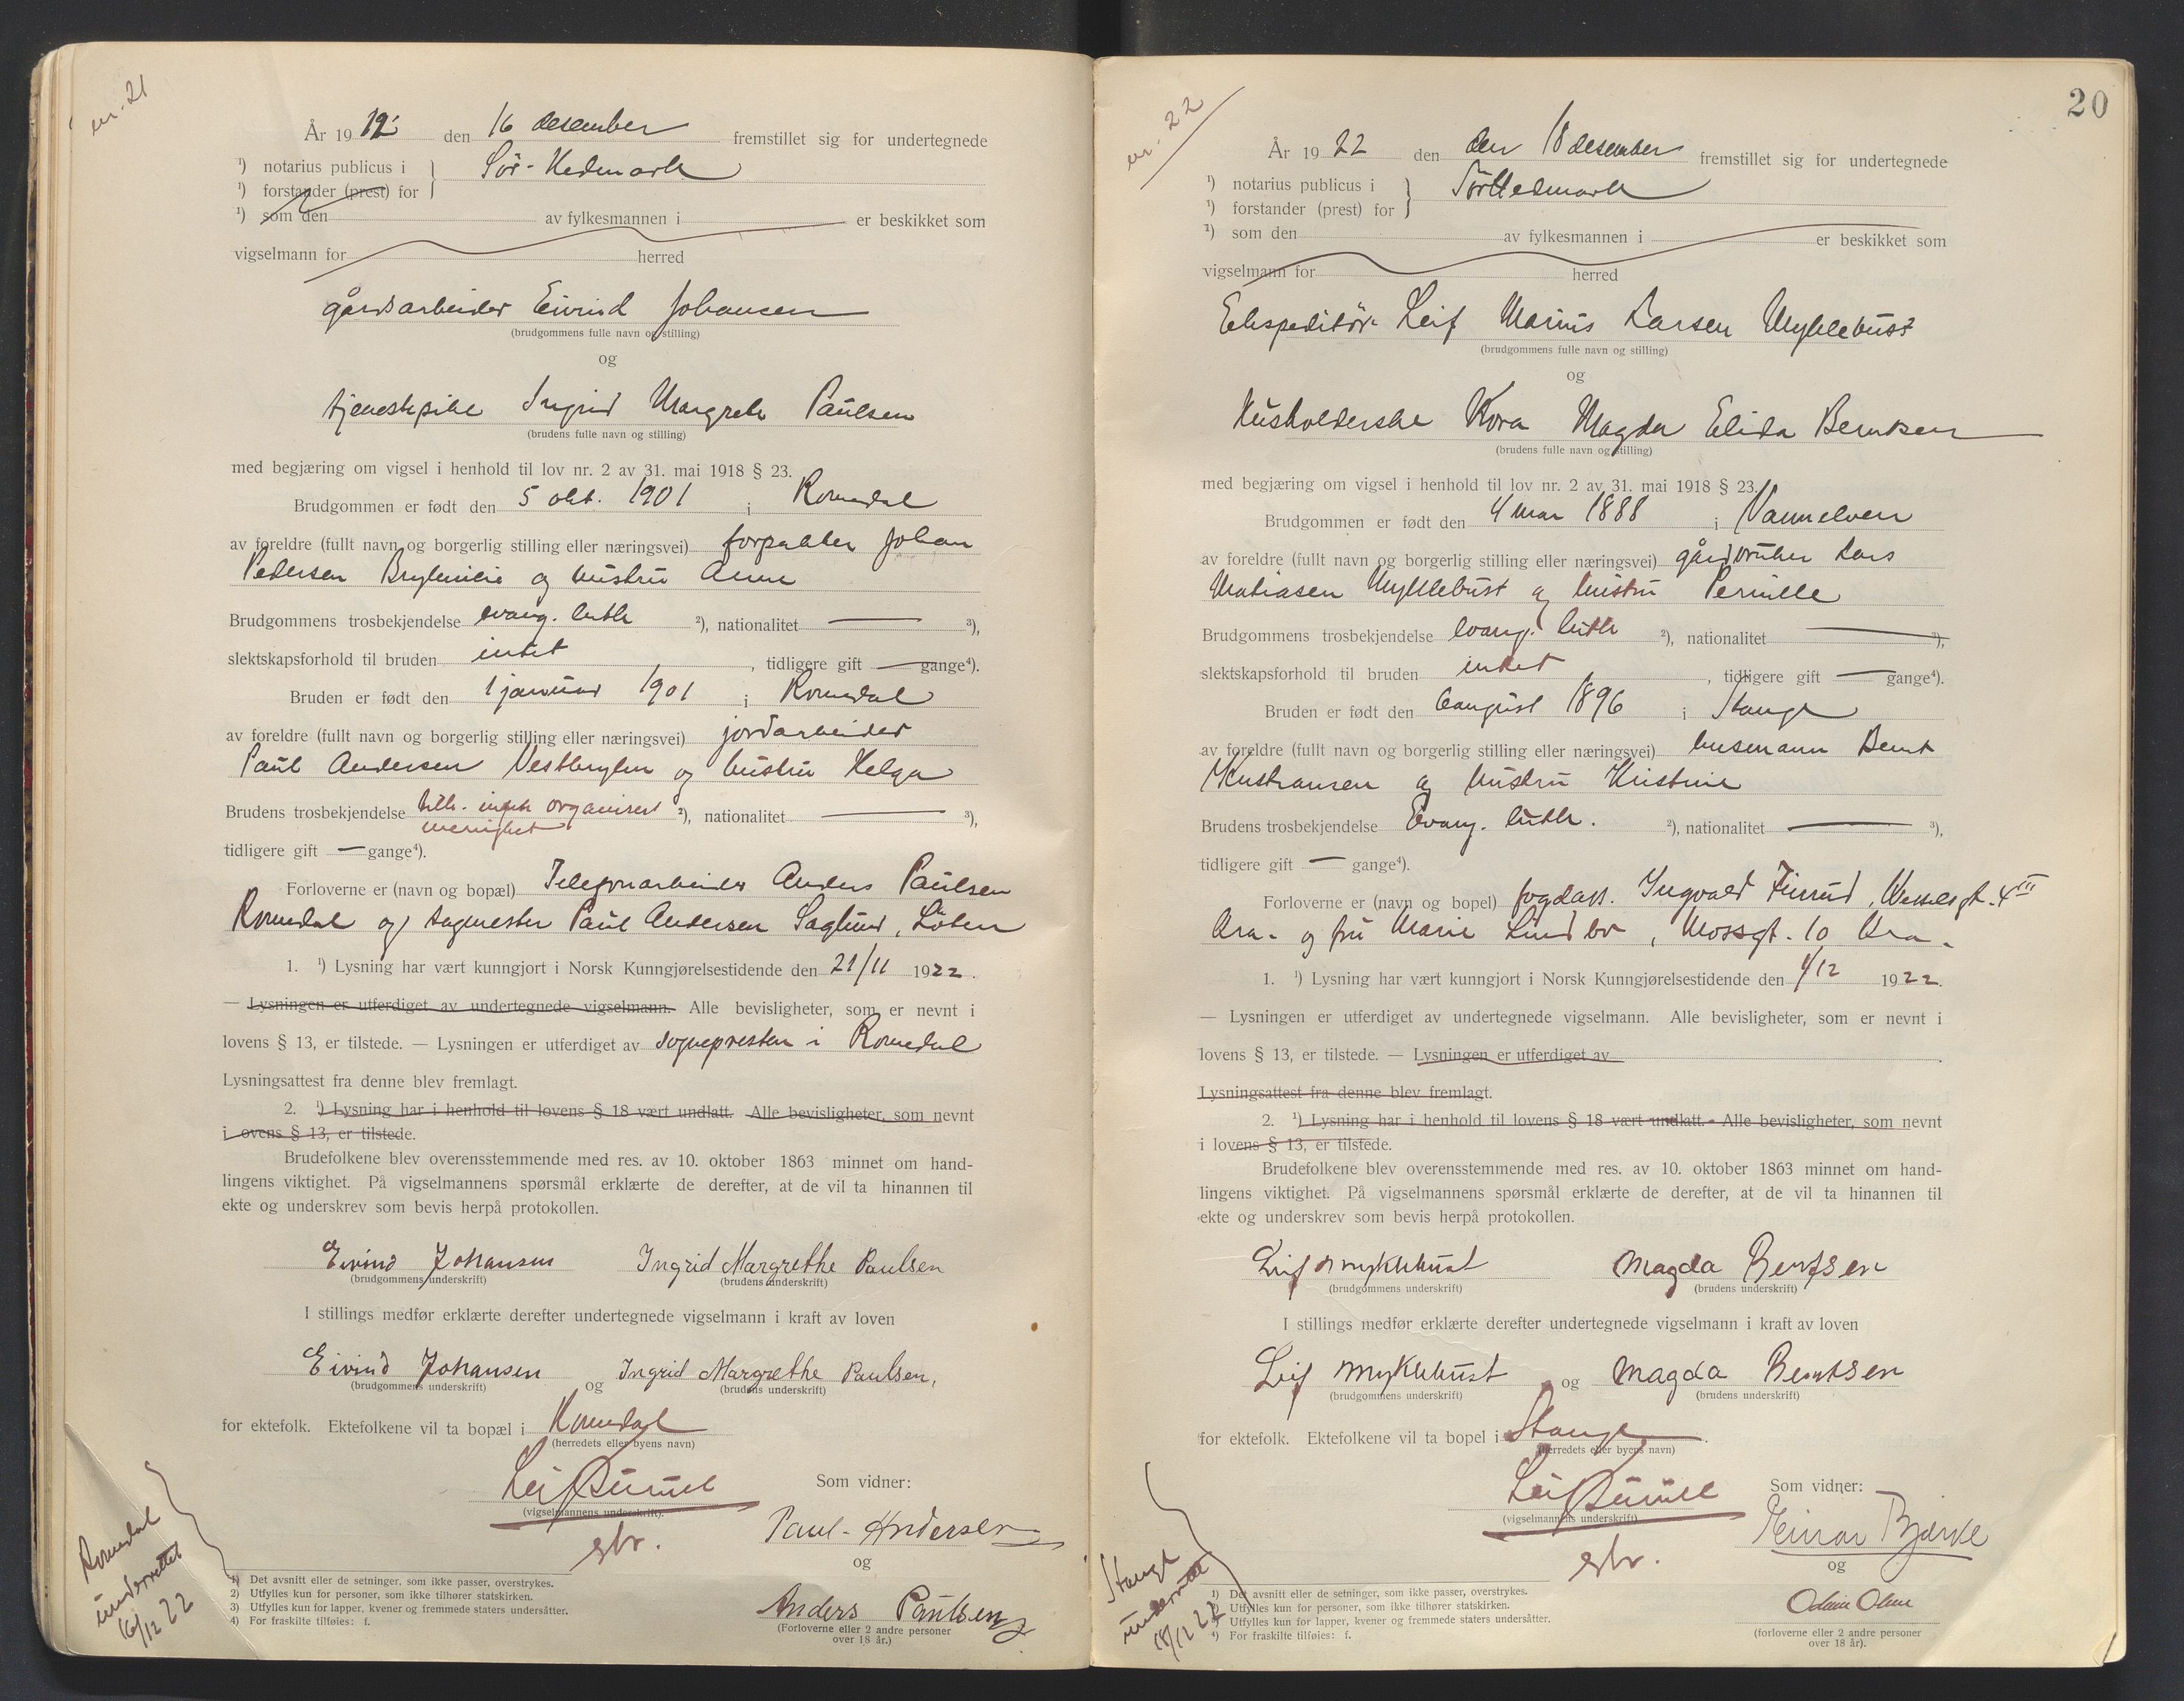 nr. 21
År 19 12 den 16 desember fremstillet sig for undertegnede
¹) notarius publicus i } Sör-Hedmark
¹) forstander (prest) for
¹) som den av fylkesmannen i er beskikket som
vigselmann for herred
gårdsarbeider Eivind Johansen
(brudgommens fulle navn og stilling)
og
tjenestepike Ingrid Margrete Paulsen
(brudens fulle navn og stilling)
med begjæring om vigsel i henhold til lov nr. 2 av 31. mai 1918 § 23.
Brudgommen er født den 5 okt. 1901 i Romedal
av foreldre (fullt navn og borgerlig stilling eller næringsvei) forpakter Johan
Pedersen og hustru Anne
Brudgommens trosbekjendelse evang. luth ²), nationalitet — ³),
slektskapsforhold til bruden intet , tidligere gift — gange⁴).
Bruden er født den 1 januar 1901 i Romedal
av foreldre (fullt navn og borgerlig stilling eller næringsvei) jordarbeider
Paul Andersen og hustru Helga
Brudens trosbekjendelse tilh. ingen organisert ²), nationalitet — ³),
menighet
tidligere gift — gange⁴).
Forloverne er (navn og bopæl) Telefonarbeider Anders Paulsen
Romedal og sagmester Paul Andersen Saglund, Löten
1. ¹) Lysning har vært kunngjort i Norsk Kunngjørelsestidende den 21/11 1922.
— Lysningen er utferdiget av undertegnede vigselmann. Alle bevisligheter, som er nevnt i
lovens § 13, er tilstede. — Lysningen er utferdiget av sognepresten i Romedal
Lysningsattest fra denne blev fremlagt.
2. ¹) Lysning har i henhold til lovens § 18 vært undlatt. Alle bevisligheter, som nevnt
i ovens § 13, er tilstede.
Brudefolkene blev overensstemmende med res. av 10. oktober 1863 minnet om hand-
lingens viktighet. På vigselmannens spørsmål erklærte de derefter, at de vil ta hinannen til
ekte og underskrev som bevis herpå protokollen.
Eivind Johansen Ingrid Margrethe Paulsen
(brudgommens underskrift) (brudens underskrift)
I stillings medfør erklærte derefter undertegnede vigselmann i kraft av loven
Eivind Johansen og Ingrid Margrethe Paulsen,
(brudgommens underskrift) (brudens underskrift)
for ektefolk. Ektefolkene vil ta bopæl i Romedal
(herredets eller byens navn)
Som vidner:
(vigselmannens underskrift).
Paul Andersen
og
Anders Paulsen
(Forloverne eller 2 andre personer
over 18 år.)
Romedal
underrettet
16/12 22
1) Det avsnitt eller de setninger, som ikke passer, overstrykes.
2) Utfylles kun for personer, som ikke tilhører statskirken.
3) Utfylles kun for lapper, kvener og fremmede staters undersåtter.
4) For fraskilte tilføies: f.
20
nr. 22
År 19 22 den den 18 desember fremstillet sig for undertegnede
¹) notarius publicus i } Sör Hedmark
¹) forstander (prest) for
¹) som den av fylkesmannen i er beskikket som
vigselmann for herred
Ekspeditör Leif Marius Larsen Myklebust
(brudgommens fulle navn og stilling)
og
Husholderske Kora Magda Elida Berntsen
(brudens fulle navn og stilling)
med begjæring om vigsel i henhold til lov nr. 2 av 31. mai 1918 § 23.
Brudgommen er født den 4 mar 1888 i Vannelven
av foreldre (fullt navn og borgerlig stilling eller næringsvei) gårdbruker Lars
Matiasen Myklebust og hustru Pernille
Brudgommens trosbekjendelse evang. luth ²), nationalitet — ³),
slektskapsforhold til bruden intet , tidligere gift — gange⁴).
Bruden er født den 6 august 1896 i Stange
av foreldre (fullt navn og borgerlig stilling eller næringsvei) husmann Bernt
Kristiansen og hustru Kristine
Brudens trosbekjendelse Evang. luth. ²), nationalitet — ³),
tidligere gift — gange⁴).
Forloverne er (navn og bopel) fogdass. Ingvald Finrud, Wesselsgt. 4 III
Kra. og fru Marie Lindbo, Mossgt. 10 Kra.
1. ¹) Lysning har vært kunngjort i Norsk Kunngjørelsestidende den 1/12 1922.
— Lysningen er utferdiget av undertegnede vigselmann. Alle bevisligheter, som er nevnt i
lovens § 13, er tilstede. — Lysningen er utferdiget av
Lysningsattest fra denne blev fremlagt.
2. ¹) Lysning har i henhold til lovens § 18 vært undlatt. - Alle bevisligheter, som nevnt
i lovens § 13, er tilstede.
Brudefolkene blev overensstemmende med res. av 10. oktober 1863 minnet om hand-
lingens viktighet. På vigselmannens spørsmål erklærte de derefter, at de vil ta hinannen til
ekte og underskrev som bevis herpå protokollen.
Leif Myklebust Magda Berntsen
(brudgommens underskrift) (brudens underskrift)
I stillings medfør erklærte derefter undertegnede vigselmann i kraft av loven
Leif Myklebust og Magda Berntsen
(brudgommens underskrift) (brudens underskrift)
for ektefolk. Ektefolkene vil ta bopel i Stange.
(herredets eller byens navn)
Som vidner:
(vigselmannens underskrift)
Einar Bjerke
og
(forloverne eller 2 andre personer
over 18 år).
Stange
underrettet
18/12 22
¹) Det avsnitt eller de setninger, som ikke passer, overstrykes.
²) Utfylles kun for personer, som ikke tilhører statskirken.
Utfylles kun for lapper, kvener og fremmede staters undersåtter.
⁴) For fraskilte tilføies: f.